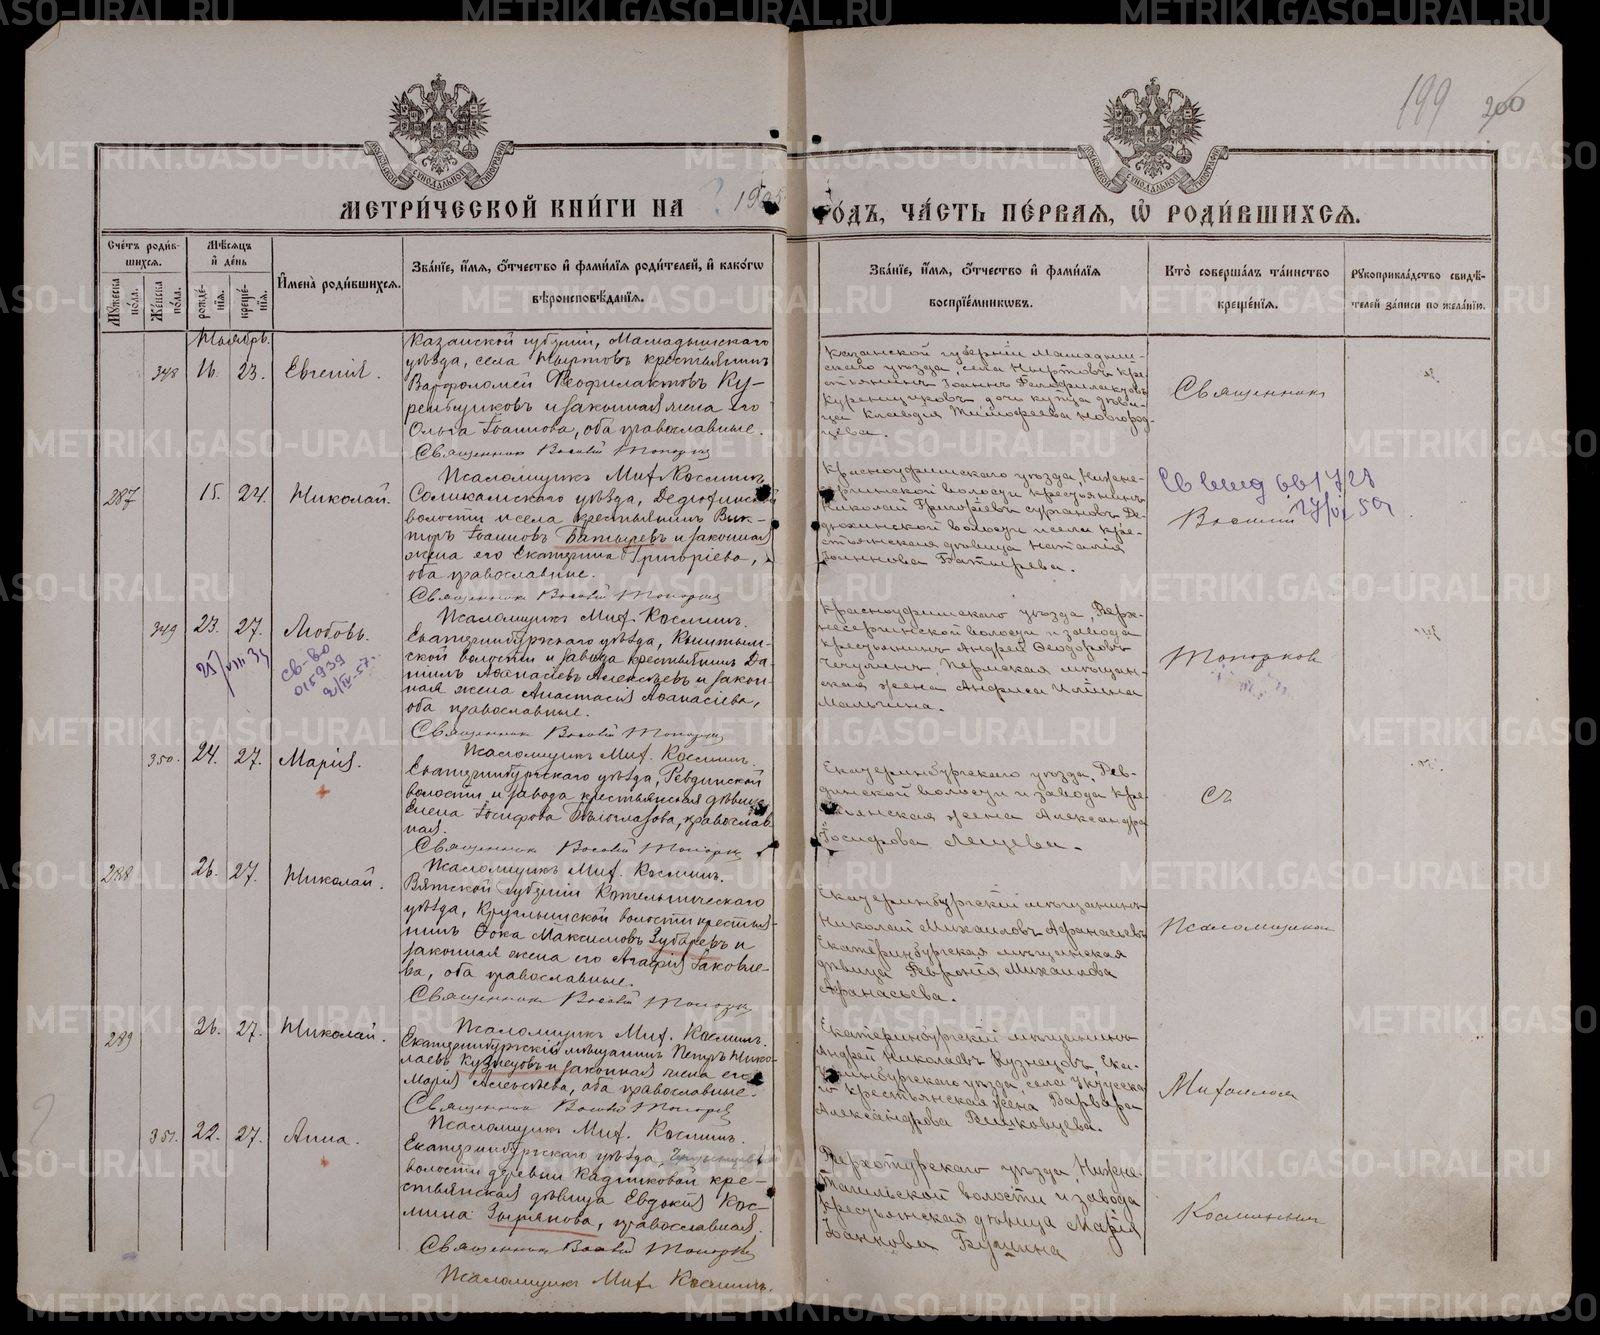 199 200
МЕТРИ́ЧЕСКОЙ КНИ́ГИ НА 1905
ГО́ДЪ, ЧА́СТЬ ПЕ́РВАЯ, Ѽ РОДИ́ВШИХСЯ.
Сче́тъ роди́вшихся.
Му́жеска по́ла.
Же́нска по́ла.
Мѣ́сяцъ и҆ де́нь
рожде́нїя.
креще́нїя.
И҆мена̀ роди́вшихся.
Зва́нїе, и҆́мя, ѻ҆́тчество и҆ фами́лїя роди́телей, и҆ како́гѡ
вѣроисповѣ́данїя.
Зва́нїе, и҆́мя, ѻ҆́тчество и҆ фами́лїя
воспрїе́мникѡвъ.
Кто̀ соверша́лъ та́инство
креще́нїя.
Рꙋкоприкла́дство свидѣ́-
телей за́писи по жела́нїю.
Ноябрь.
348 16. 23. Евгенія.
Казанской губерніи, Мамадышскаго
уѣзда, села Ныртовъ крестьянинъ
Варфоломей Ѳеофилактовъ Ку-
ренщиковъ и законная жена его
Ольга Іоаннова, оба православные.
Священник Василій Топорков
Псаломщикъ Миѳ. Косминъ.
Казанской губерніи Мамадыш-
скаго уѣзда, села Ныртовъ кре-
стьянинъ Іоаннъ Ѳеофилактовъ
Куренщиковъ, дочь купца дѣви-
ца Клавдія Тимофеева Новгород-
цева.
Священник
287 15. 24. Николай.
Соликамскаго уѣзда, Дедюхинской
волости и села крестьянинъ Вик-
торъ Іоанновъ Батыревъ и законная
жена его Екатерина Григоріева,
оба православные.
Священник Василій Топорков
Псаломщикъ Миѳ. Косминъ.
Красноуфимскаго уѣзда, Нижне-
сергинской волости крестьянинъ
Николай Григоріевъ Сургановъ, Де-
дюхинской волости и села кре-
стьянская дѣвица Наталія
Іоаннова Батырева.
Василий
349 23. 27. Любовь.
25/VIII 34
св-во
015939
2/IV-57.
Екатеринбургскаго уѣзда, Кыштым-
ской волости и завода крестьянинъ Да-
ніилъ Аѳанасіевъ Алексѣевъ и закон-
ная жена Анастасія Аѳанасіева,
оба православные.
Священник Василій Топорков
Псаломщикъ Миѳ. Косминъ.
Красноуфимскаго уѣзда, Верх-
несергинской волости и завода
крестьянинъ Андрей Ѳеодоровъ
Пермская мѣщан-
ская жена
Мальгина.
Топорков
350. 24. 27. Марія.
Екатеринбургскаго уѣзда, Ревдинской
волости и завода крестьянская дѣвица
Елена Іосифова Бѣлоглазова, православ-
ная.
Священник Василій Топорков
Псаломщикъ Миѳ. Косминъ.
Екатеринбургскаго уѣзда, Рев-
динской волости и завода кре-
стьянская жена Александра
Іосифова Лещева.
съ
288 26. 27. Николай.
Вятской губерніи Котельническаго
уѣзда, волости крестья-
нинъ Ѳока Максимовъ Зубаревъ и
законная жена его Агафія Іаковле-
ва, оба православные.
Священник Василій Топорков
Псаломщикъ Миѳ. Косминъ.
Екатеринбургскій мѣщанинъ
Николай Михаиловъ Афанасьевъ
Екатеринбургская мѣщанская
дѣвица Февронія Михаилова
Афанасьева.
Псаломщиком
289 26. 27. Николай.
Екатеринбургскій мѣщанинъ Петръ Нико-
лаевъ Кузнецовъ и законная жена его
Марія Алексѣева, оба православные.
Священник Василій Топорков
Псаломщикъ Миѳ. Косминъ.
Екатеринбургскій мѣщанинъ
Андрей Николаевъ Кузнецовъ, Ека-
теринбургскаго уѣзда, села
крестьянская жена Варвара
Александрова
Митофаном
351. 22. 27. Анна.
Екатеринбургскаго уѣзда,
волости деревни Кадниковой кре-
стьянская дѣвица Евдокія Кос-
мина Зырянова, православная.
Священник Василій Топорков
Псаломщикъ Миѳ. Косминъ.
Верхотурскаго уѣзда, Нижне-
тагильской волости и завода
крестьянская дѣвица Марія
Косминым
METRIKI.GASO-URAL.RU